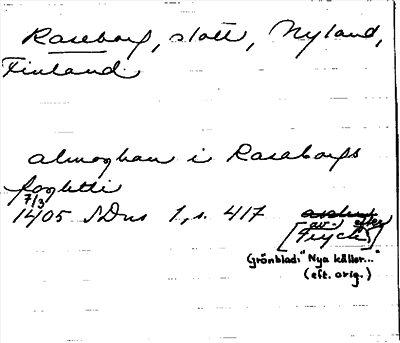 Raseborg, slott, Nyland,
Finland
almoghen i Raseborgs
foghetti
7/3
1405 SDns 1, s. 417
av- efter
[Tryck].
Grönblad: "Nya källor...
(eft. orig.)